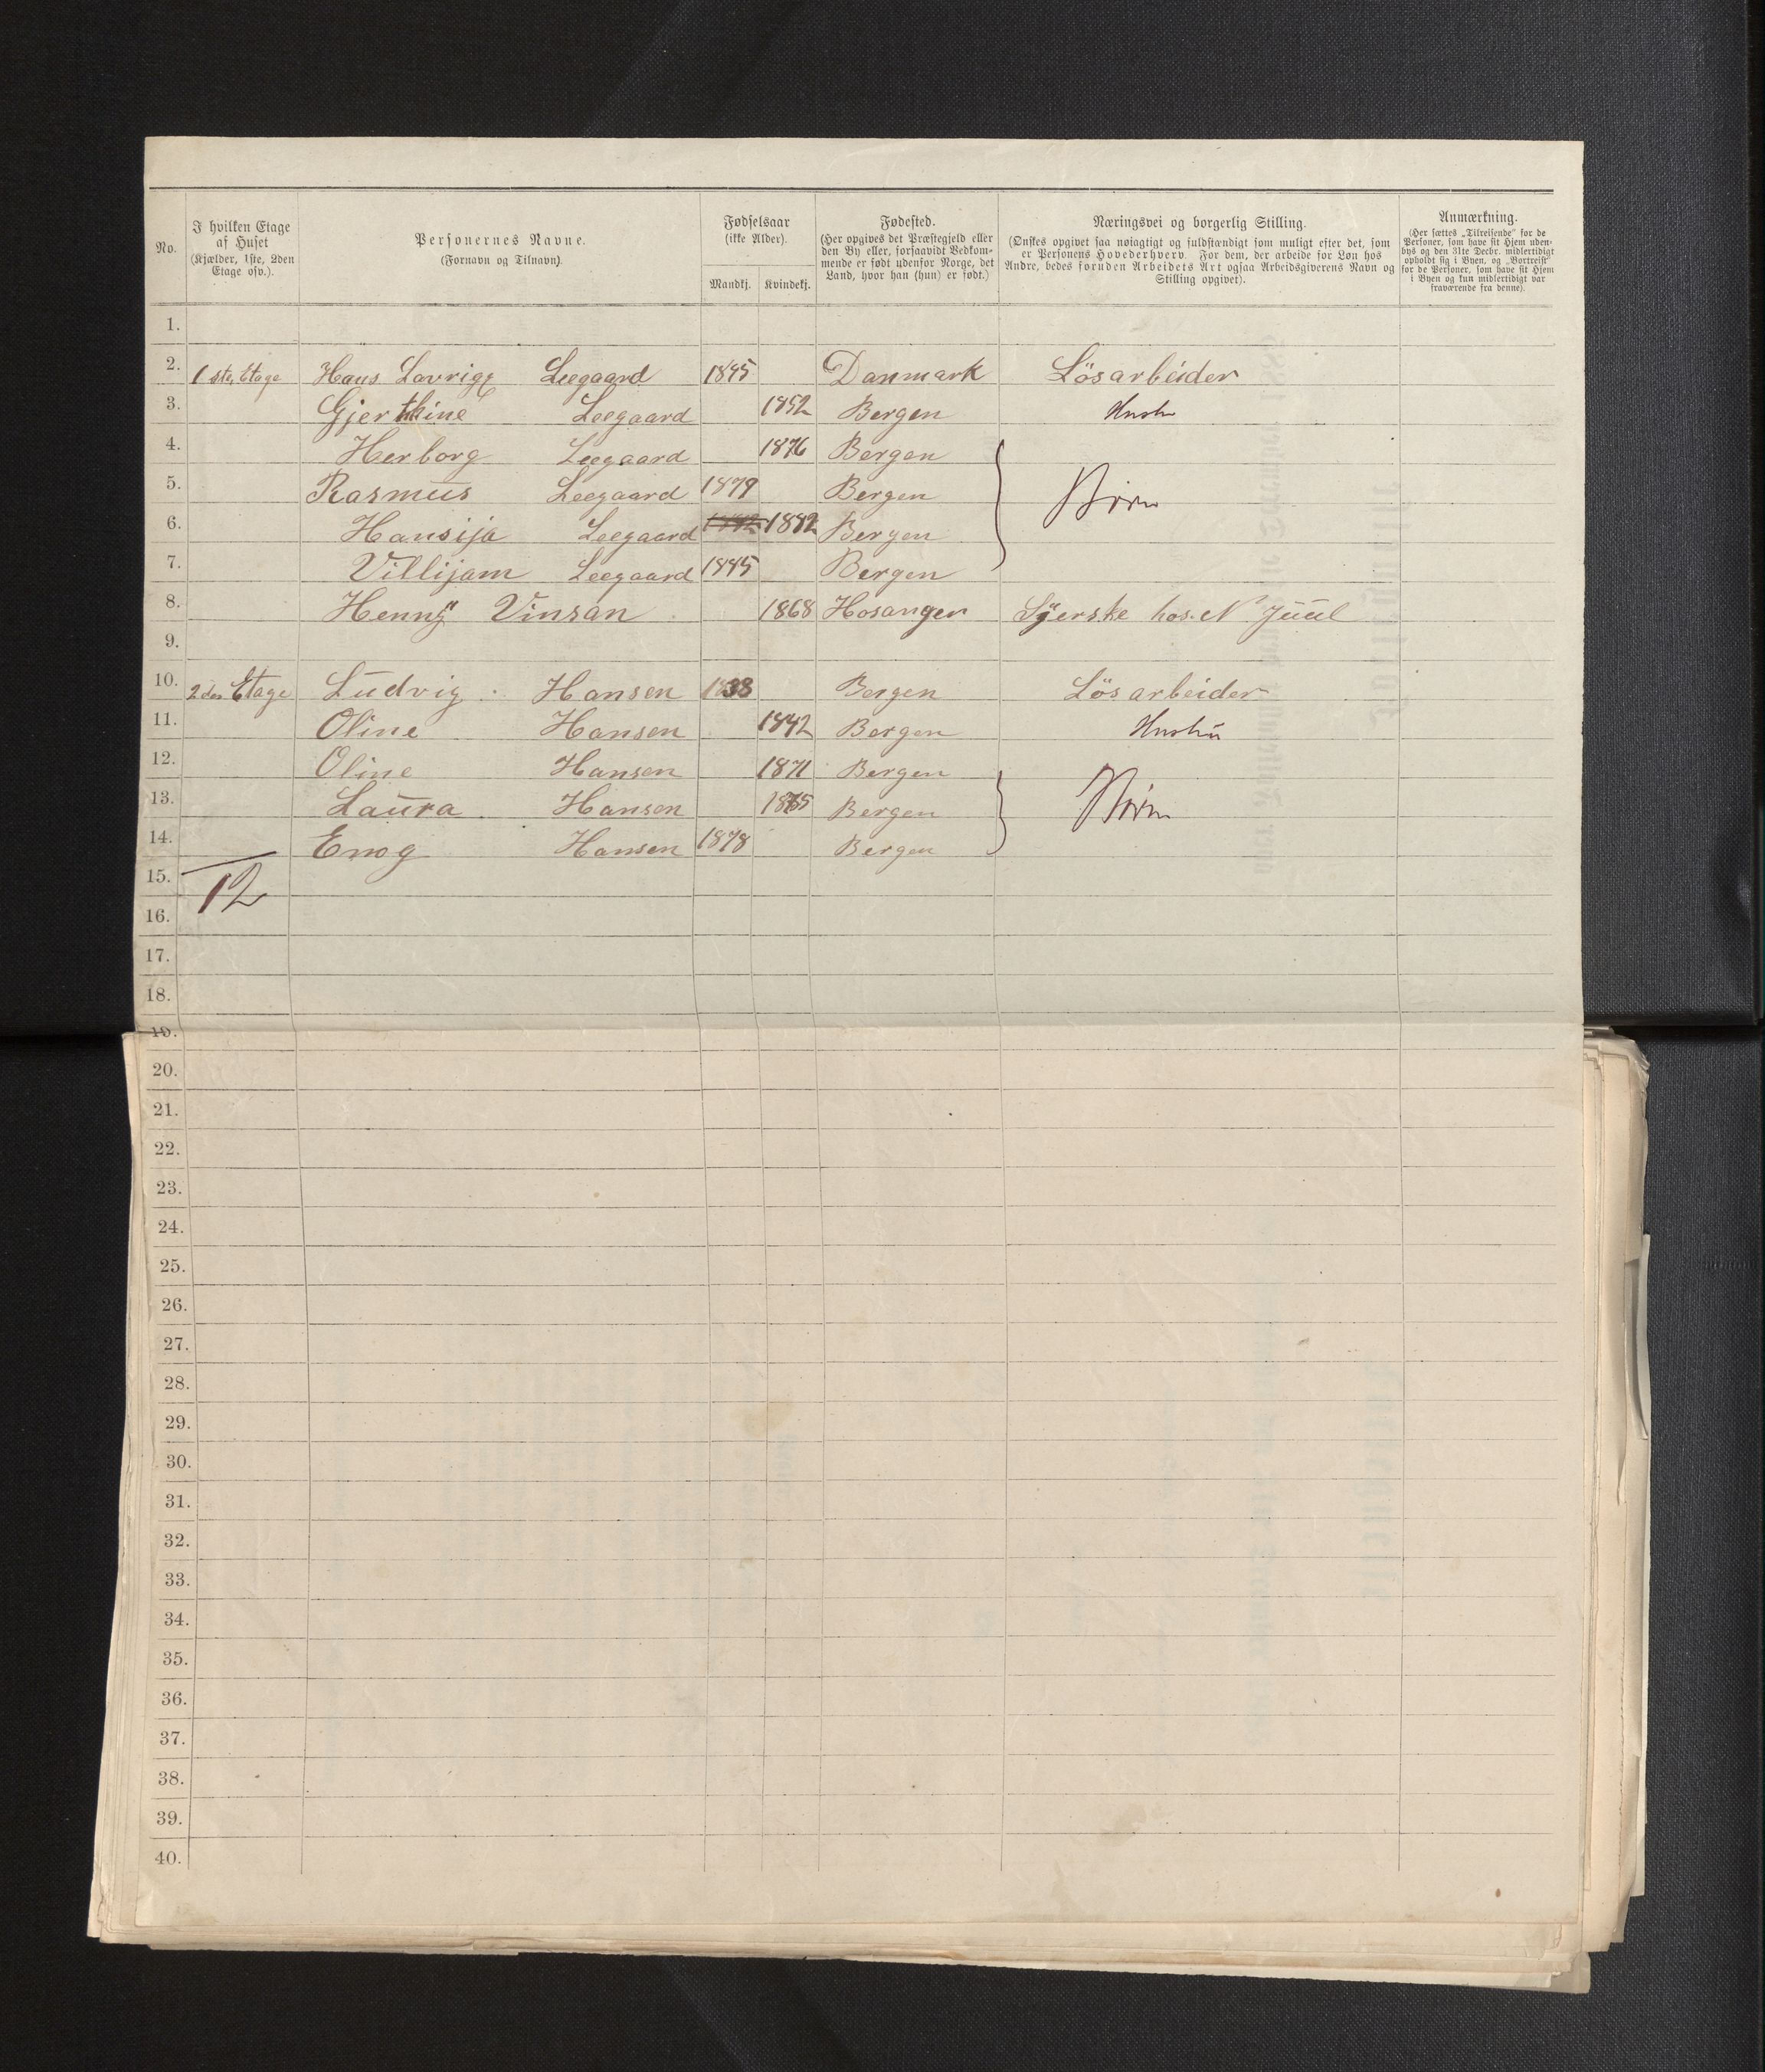 No.
I hvilken Etage
af Huset
(Kjælder, 1ste, 2den
Etage osv.).
Personernes Navne.
(Fornavn og Tilnavn).
Fødselsaar
(ikke Alder).
Mandkj. Kvindekj.
Fødested.
(Her opgives det Præstegjeld eller
den By eller, forsaavidt Vedkom-
mende er født udenfor Norge, det
Land, hvor han (hun) er født.)
Næringsvei og borgerlig Stilling.
(Ønskes opgivet saa nøiagtigt og fuldstændigt som muligt efter det, som
er Personens Hovederhverv. For dem, der arbeide for Løn hos
Andre, bedes foruden Arbeidets Art ogsaa Arbeidsgiverens Navn og
Stilling opgivet).
Anmærkning.
(Her sættes „Tilreisende“ for de
Personer, som have sit Hjem uden-
bys og den 31te Decbr. midlertidigt
opholdt sig i Byen, og „Bortreist“
for de Personer, som have sit Hjem
i Byen og kun midlertidigt var
fraværende fra denne).
1.
2. 1 ste Etage Hans Lavrig Leegaard 1845 Danmark Lösarbeider
3. Gjerthine Leegaard 1852 Bergen Hustr
4. Herborg Leegaard 1876 Bergen
5. Rasmus Leegaard 1879 Bergen Børn
6. Hansija Leegaard 1882 Bergen
7. Villijam Leegaard 1885 Bergen
8. Henny Vinsan 1868 Hosanger Syerske hos. N Juul
9.
10. 2 den Etage Ludvig Hansen 1838 Bergen Lösarbeider
11. Oline Hansen 1842 Bergen Hustru
12. Oline Hansen 1871 Bergen
13. Laura Hansen 1875 Bergen Børn
14. Enog Hansen 1878 Bergen
15. 12
16.
17.
18.
19.
20.
21.
22.
23.
24.
25.
26.
27.
28.
29.
30.
31.
32.
33.
34.
35.
36.
37.
38.
39.
40.